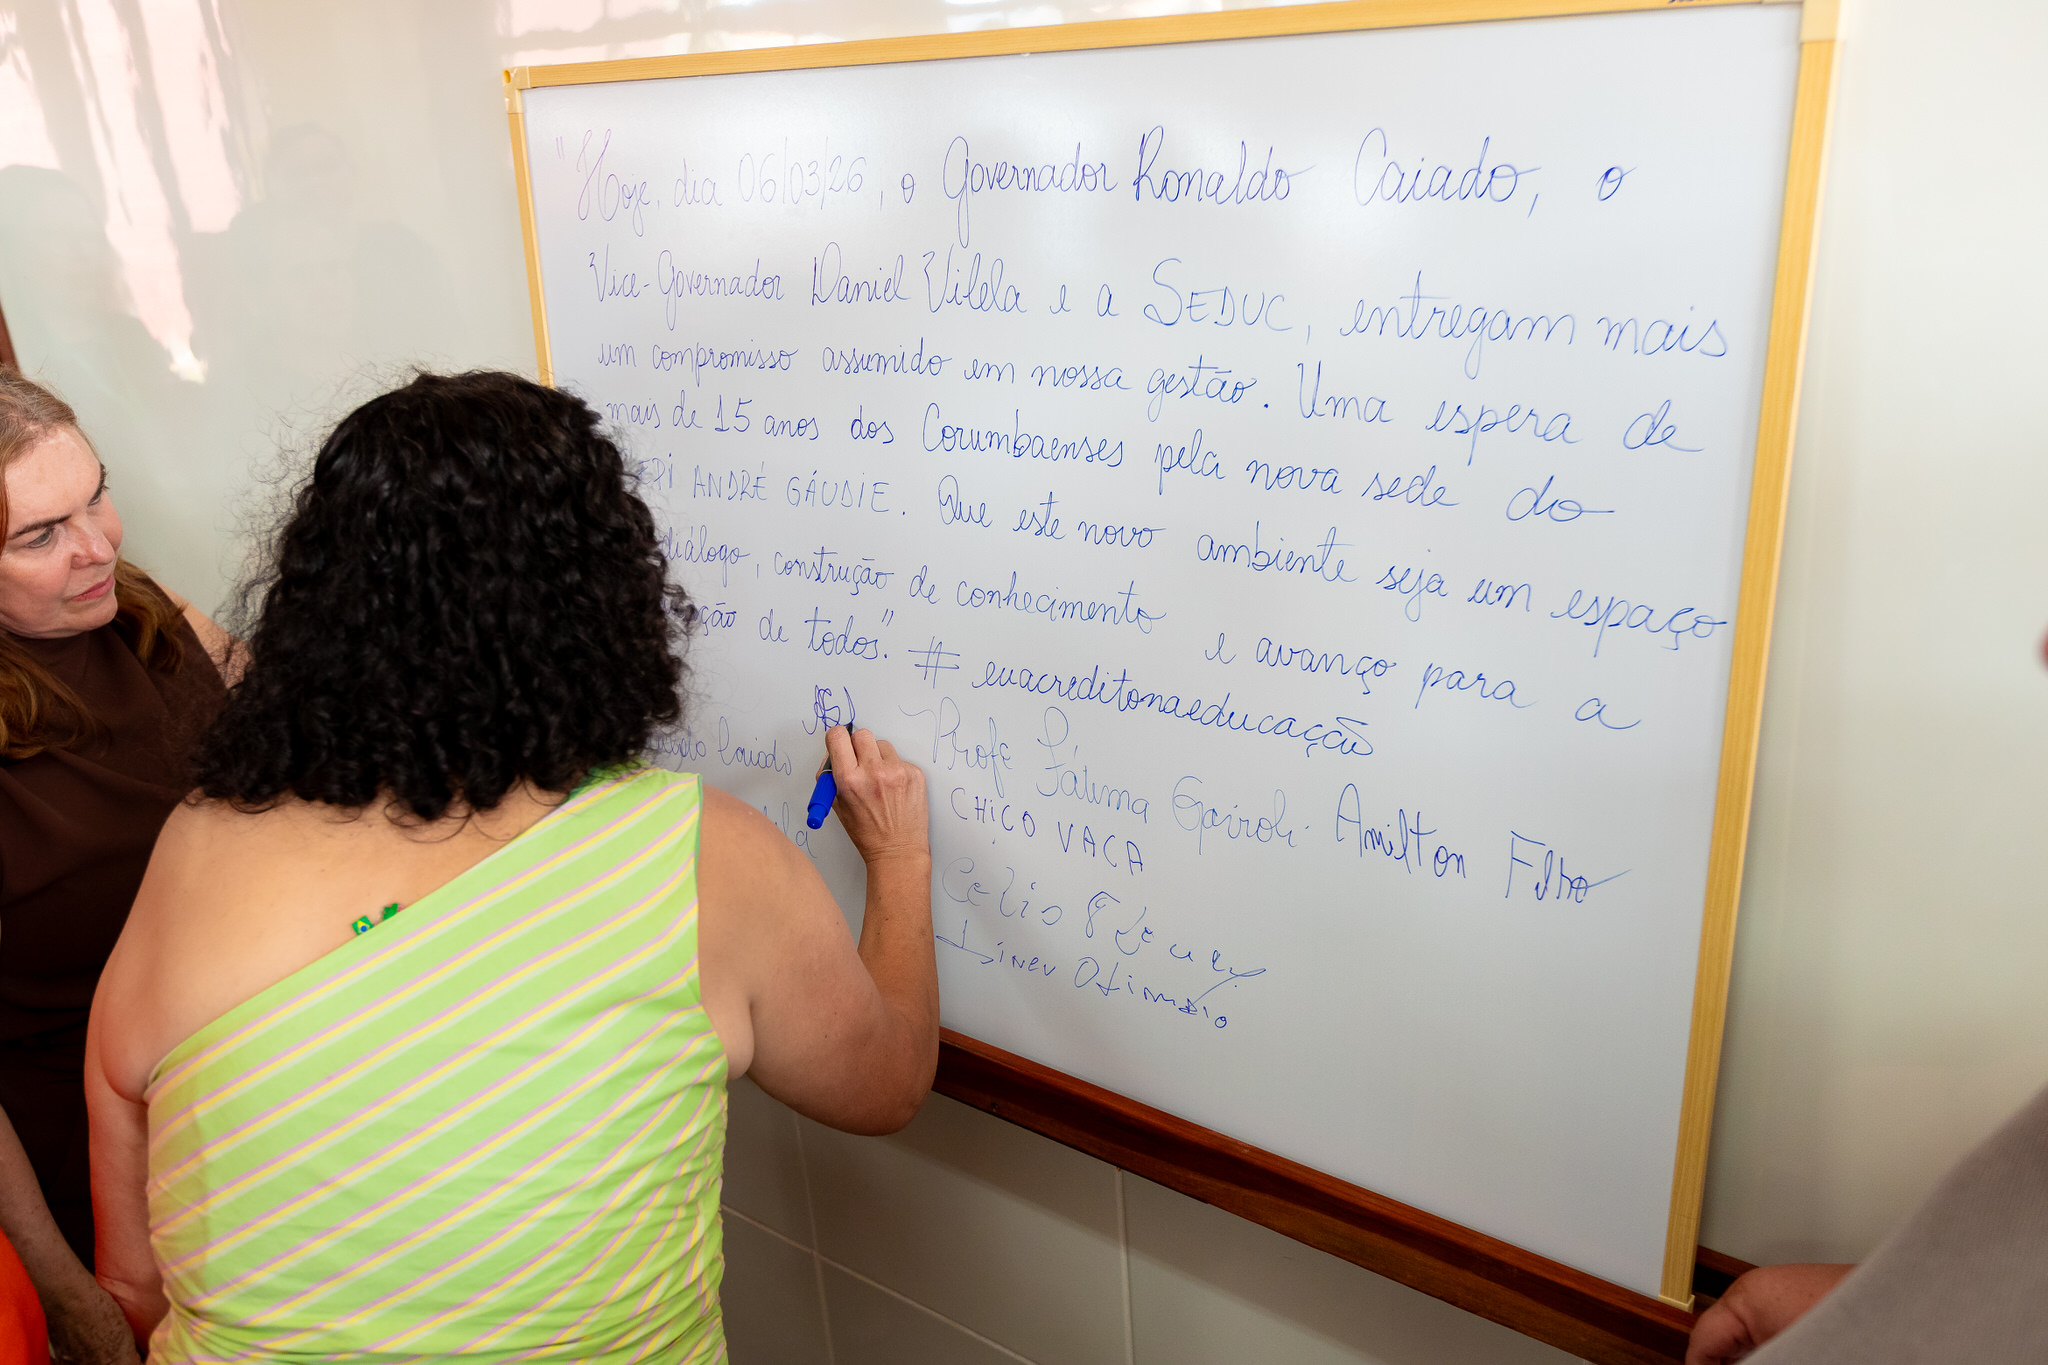 "Hoje, dia 06/03/26, o Governador Ronaldo Caiado, o
Vice-Governador Daniel Vilela e a SEDUC, entregam mais
um compromisso assumido em nossa gestão. Uma espera de
mais de 15 anos dos Corumbaenses pela nova sede do
ANDRÉ GAÚDIE. Que este novo ambiente seja um espaço
diálogo, construção de conhecimento e avanço para a
de todos." #euacreditonaeducação
Caiado
Profe Fátima Gaviroli Amilton Filho
CHICO VACA